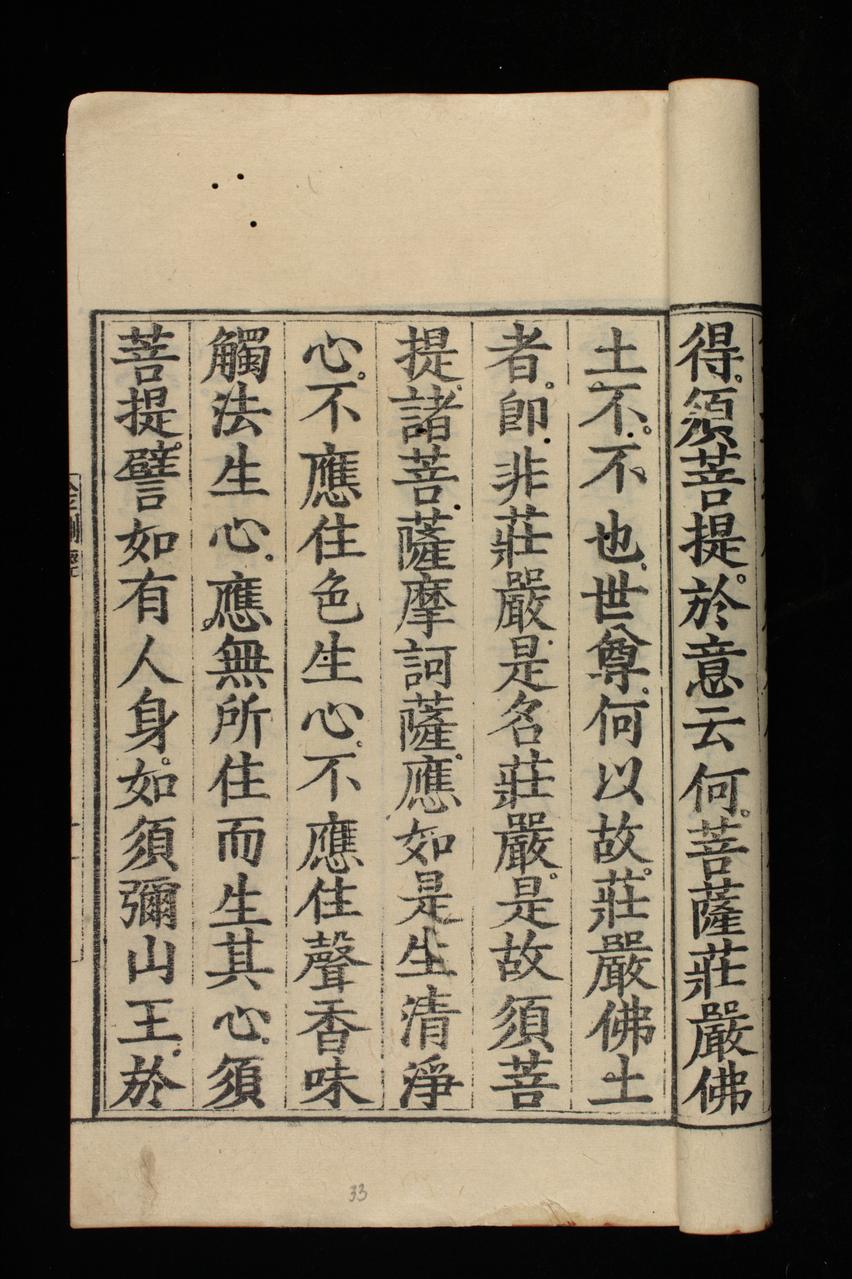 得。須菩提。於意云何。菩薩莊嚴佛
土不。不也。世尊。何以故。莊嚴佛土
者。即非莊嚴。是名莊嚴。是故須菩
提。諸菩薩摩訶薩。應如是生清淨
心。不應住色生心。不應住聲香味
觸法生心。應無所住而生其心。須
菩提。譬如有人。身如須彌山王。於
金剛經
33